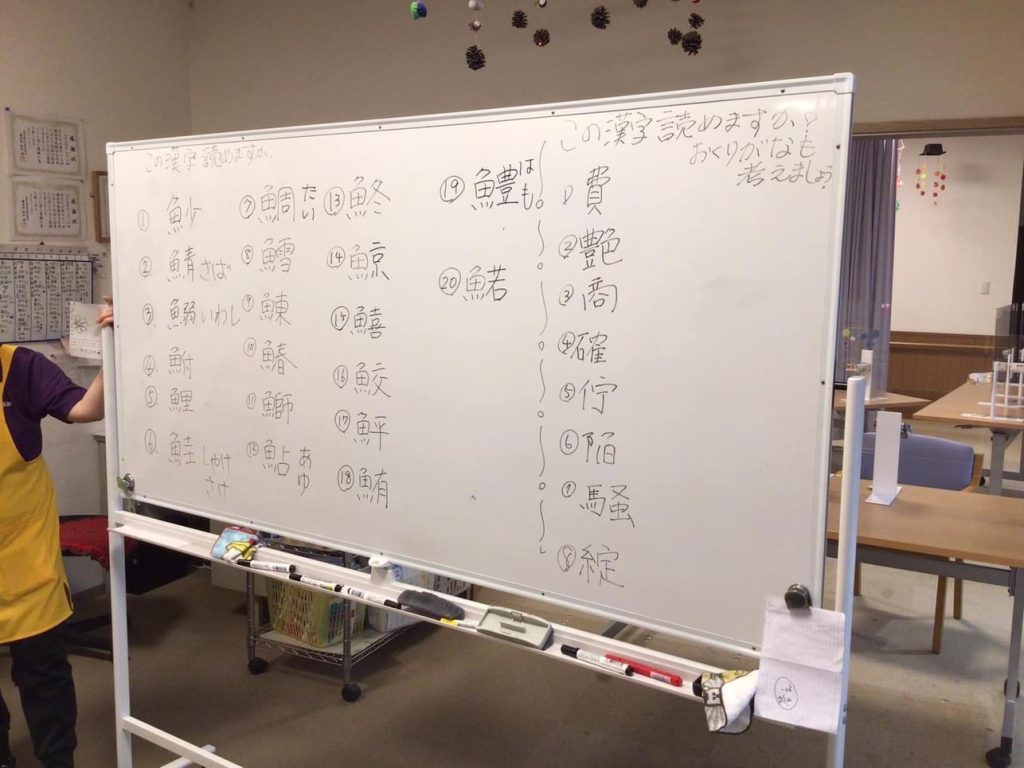 この漢字読めますか
① 魦
② 鯖 さば
③ 鰯 いわし
④ 鮒
⑤ 鯉
⑥ 鮭 しゃけ
さけ
⑦ 鯛 たい
⑧ 鱈
⑨ 鰊
⑩ 鰆
⑪ 鰤
⑫ 鮎 あゆ
⑬ 鮗
⑭ 鯨
⑮ 鱚
⑯ 鮫
⑰ 鮃
⑱ 鮪
⑲ 鱧 はも
⑳ 鰙
この漢字読めますか?
おくりがなも
考えましょう
① 費
② 艶
③ 商
④ 確
⑤ 佇
⑥ 陥
⑦ 騒
⑧ 綻